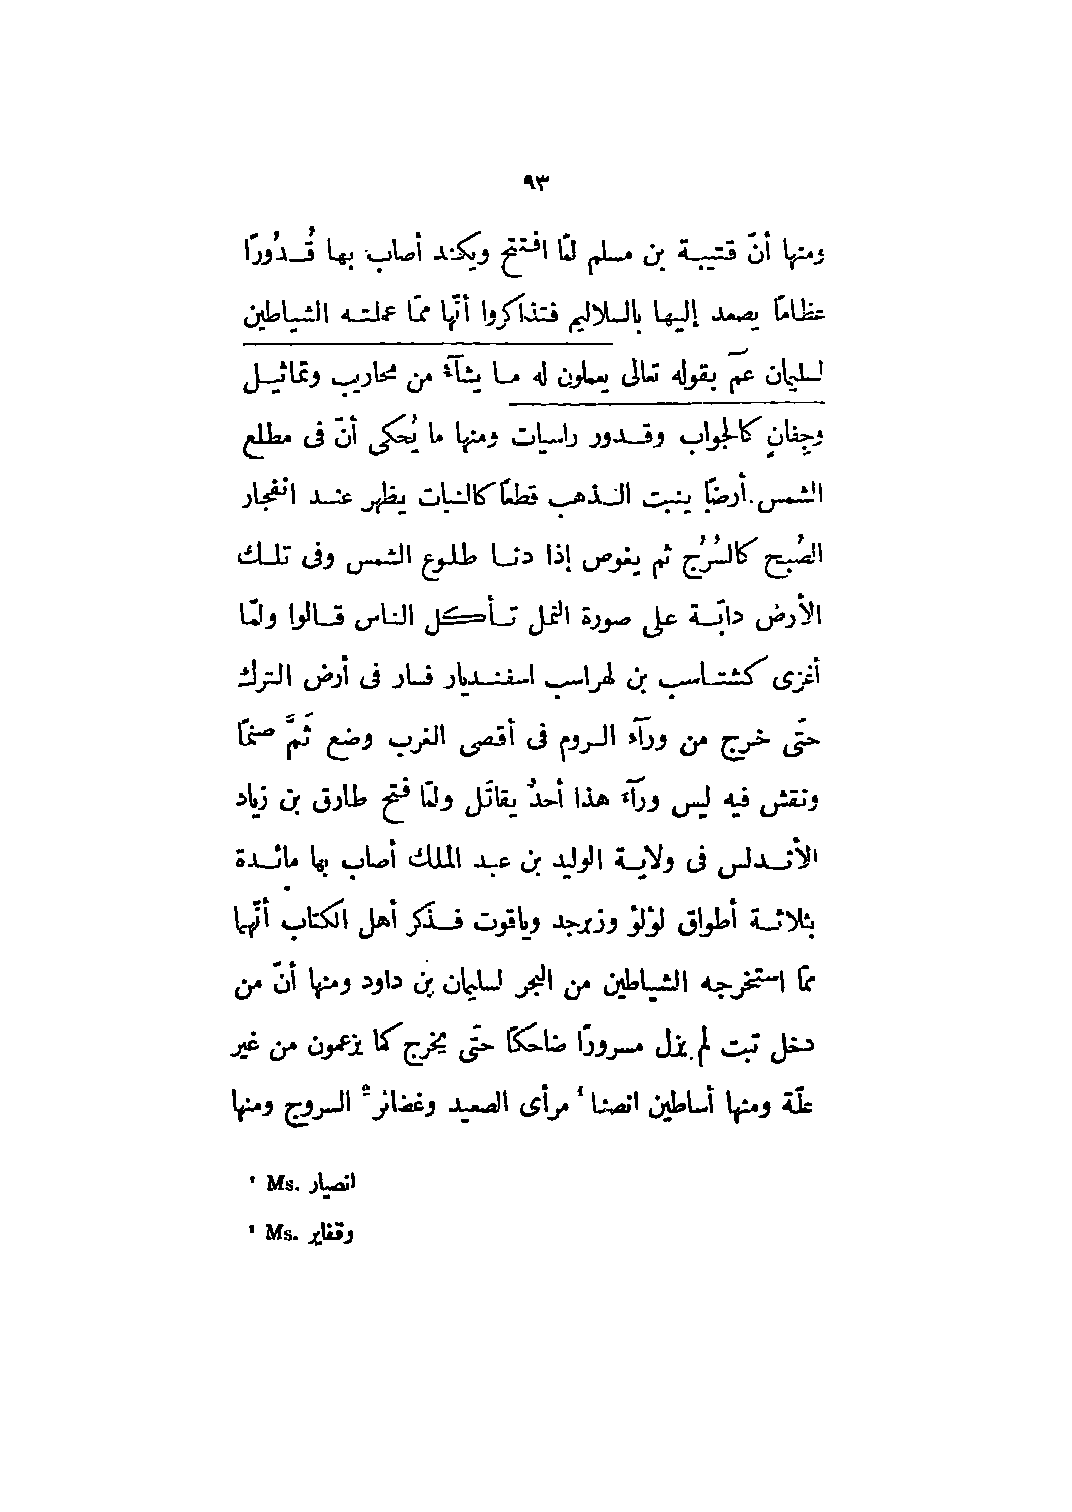 ٩٣
ومنها أنّ قتيبة بن مسلم لمّا افتتح ويكند أصاب بها قُدُورًا
عظامًا يصعد إليها بالسلاليم فتذاكروا أنّها ممّا عملته الشياطين
لسليمان عمّ بقوله تعالى يعملون له ما يشآء من محاريب وتماثيل
وجِفانٍ كالجواب وقدور راسيات ومنها ما يُحكى أنّ فى مطلع
الشمس أرضًا ينبت الذهب قطعًا كالنبات يظهر عند انفجار
الصُبح كالسُرُج ثم يغوص إذا دنا طلوع الشمس وفى تلك
الأرض دابّة على صورة النمل تأكل الناس قالوا ولمّا
أغزى كشتاسب بن لهراسب اسفنديار فسار فى أرض الترك
حتّى خرج من ورآء الروم فى أقصى الغرب وضع ثَمَّ صنمًا
ونقش فيه ليس ورآء هذا أحدٌ يقاتَل ولمّا فتح طارق بن زياد
الأندلس فى ولاية الوليد بن عبد الملك أصاب بها مائدة
بثلاثة أطواق لؤلؤ وزبرجد وياقوت فذكر أهل الكتاب أنّها
ممّا استخرجه الشياطين من البحر لسليمان بن داود ومنها أنّ من
دخل تبت لم يزل مسرورًا ضاحكًا حتّى يخرج كما يزعمون من غير
علّة ومنها أساطين انصنا¹ مرأى الصعيد وغضائر² السروج ومنها
¹ Ms. انصيار
² Ms. وقفاير